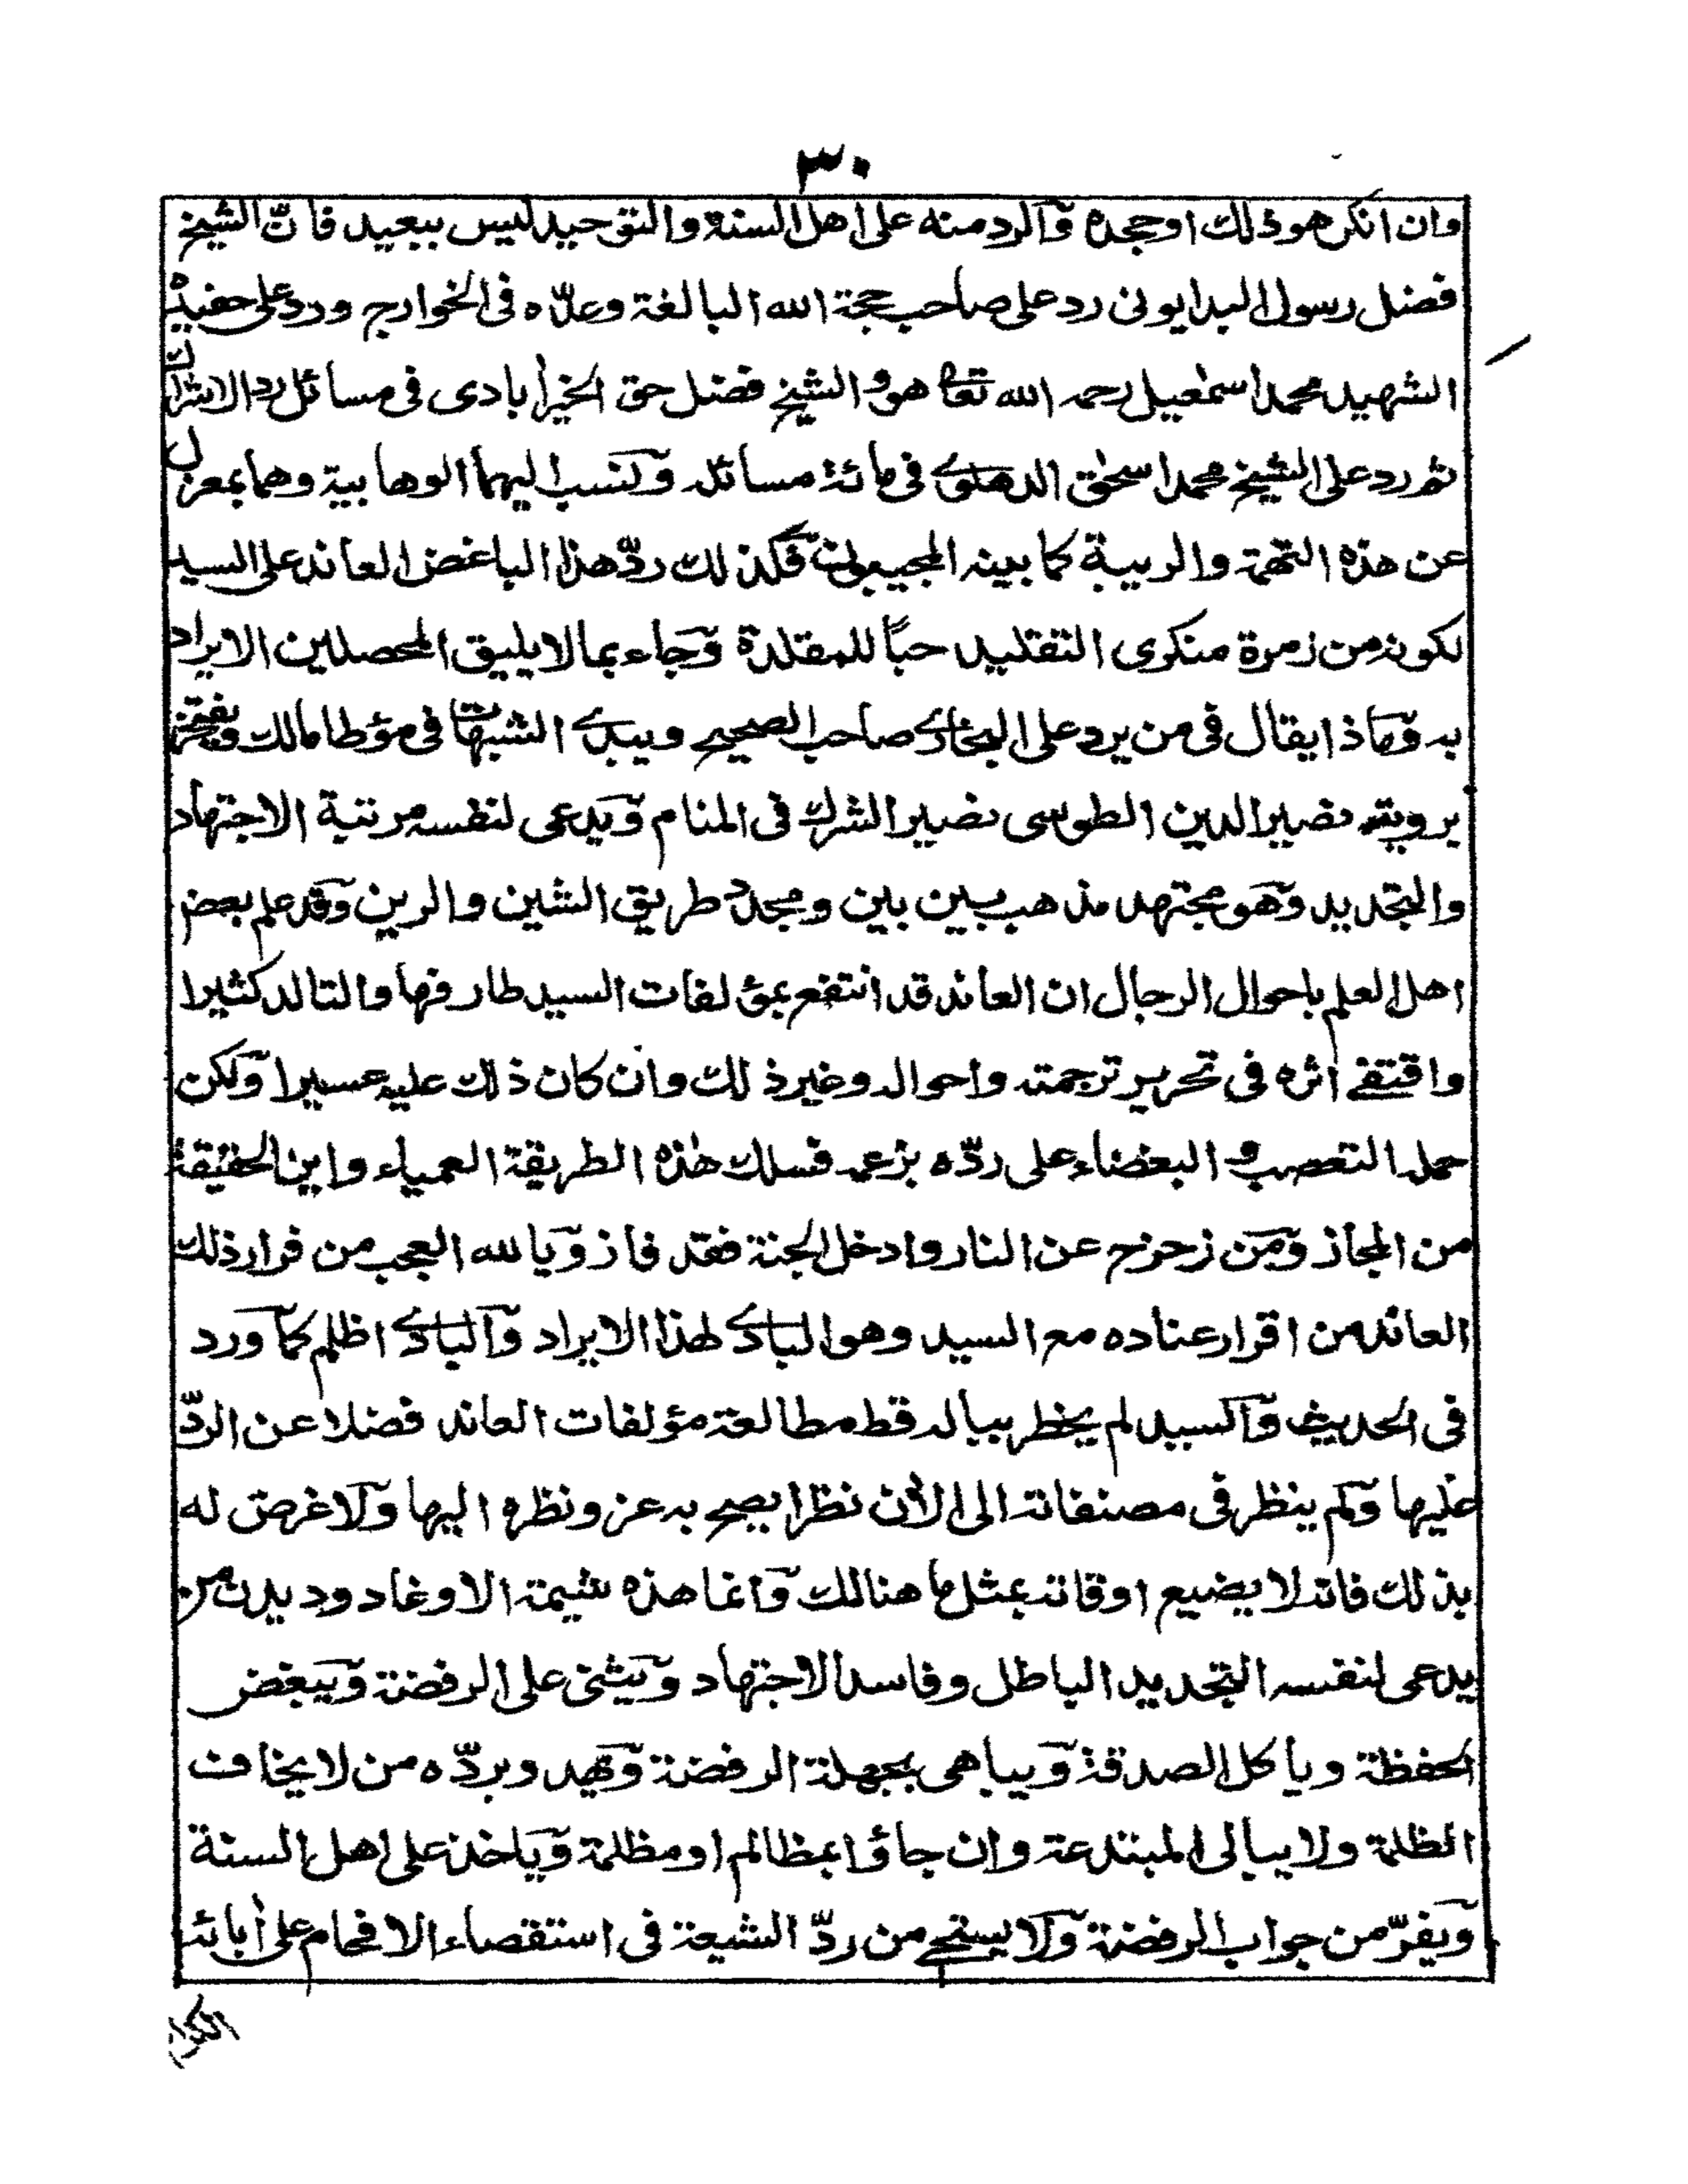 ٣٠
وان انكر هو ذلك او جحده والرد منه على اهل السنة والتوحيد ليس ببعيد فانّ الشيخ
فضل رسول البدايونى رد على صاحب حجة الله البالغة وعدّه فى الخوارج ورد على حفيده
الشهيد محمد اسمٰعيل رحمه الله تعا هو والشيخ فضل حق الخيرابادى فى مسائل رد الاشراك
ثم رد على الشيخ محمد اسحٰق الدهلوى فى مائة مسائله ونسب اليهما الوهابية وهما بمعزل
عن هذه التهمة والريبة كما بينه المجيبون فكذلك ردّ هذا الباغض العاند على السيد
لكونه من زمرة منكرى التقليد حبًا للمقلدة وجاء بما لا يليق المحصلين الايراد
به وماذا يقال فى من يرد على البخارى صاحب الصحيح ويبدى الشبهات فى مؤطا مالك ويفتخر
برويته نصير الدين الطوسى نصير الشرك فى المنام ويدعى لنفسه مرتبة الاجتهاد
والتجديد وهو مجتهد مذهب بين بين ومجدد طريق الشين والرين وقد علم بعض
اهل العلم باحوال الرجال ان العاند قد انتفع بمؤلفات السيد طارفها والتالد كثيرا
واقتفى اثره فى تحرير ترجمته واحواله وغير ذلك وان كان ذلك عليه عسيرا ولكن
حمله التعصب و البغضاء على ردّه بزعمه فسلك هٰذه الطريقة العمياء واين الحقيقة
من المجاز ومن زحزح عن النار وادخل الجنة فقد فاز ويا لله العجب من فرار ذلك
العاند من اقرار عناده مع السيد وهو البادى لهذا الايراد والبادى اظلم كما ورد
فى الحديث والسيد لم يخطر بباله قط مطالعة مؤلفات العاند فضلا عن الردّ
عليها ولم ينظر فى مصنفاته الى الأن نظرا يصح به عزو نظره اليها ولا غرض له
بذلك فانه لا يضيع اوقاته بمثل ما هنالك وانما هذه شيمة الاوغاد وديدن من
يدعى لنفسه التجديد الباطل وفاسد الاجتهاد ويثنى على الرفضة ويبغض
الحفظة وياكل الصدقة ويباهى بجهلة الرفضة وبردّه من لا يخاف
الظلمة ولا يبالى المبتدعة وان جاؤا بمظالم او مظلمة وياخذ على اهل السنة
ويفرّ من جواب الرفضة ولا يستحى من ردّ الشيعة فى استقصاء الافحام على أبائه
الكرام